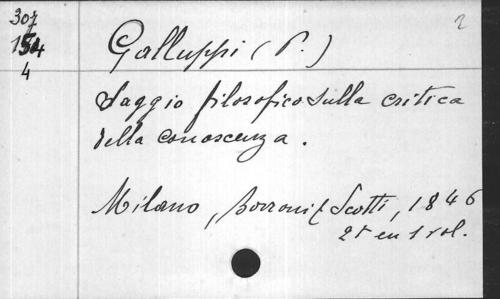 307
154
4
2
Galluppi (P.)
Saggio filosofico sulla critica
della conoscenza.
Milano, Borroni & Scotti, 1846
2t en 1 vol.